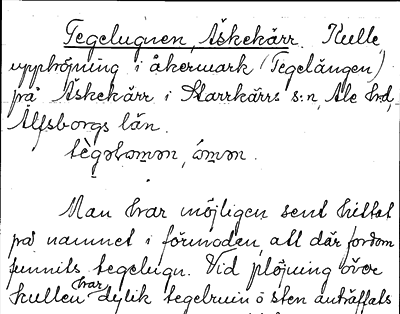 Tegelugnen, Äskekärr. Kulle,
upphöjning i åkermark (Tegelängen)
på Äskekärr i Starrkärrs s:n, Ale hd,
Älfsborgs län.
Man har möjligen sent hittat
på namnet i förmoden, att där fordom
funnits tegelugn. Vid plöjning över
kullen har dylik tegelruin o sten anträffats